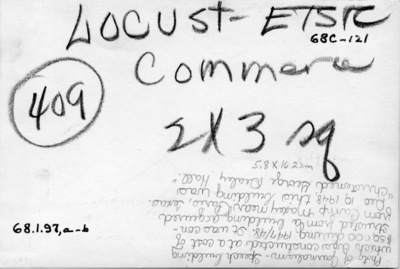 LOCUST - ETSTC
68C-121
Commerce
409
2 X 3 sq
68.1.97,a-b
5.8 X 16.2 cm
Pict. of Journalism - Speech building
which was constructed at a cost of
$50,000 during 1947/48. It was con-
structed from a building acquired
from Camp Maxey near Paris, Texas.
Dec 19 1948 this building was
Christened "George Dealey Hall."